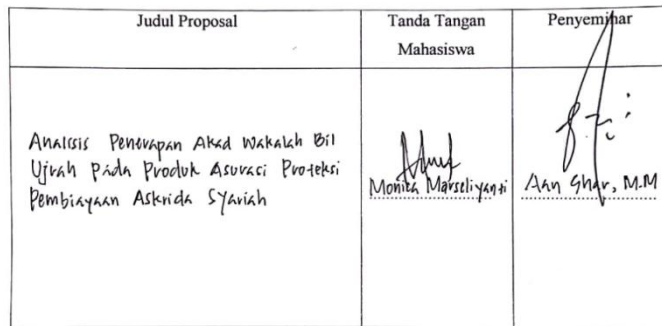 Judul Proposal
Tanda Tangan
Mahasiswa
Penyeminar
Analisis Penerapan Akad Wakalah Bil
Ujrah Pada Produk Asuraci Proteksi
Pembiayaan Askrida Syariah
Monica Marseliyanti
Aan Shar, M.M